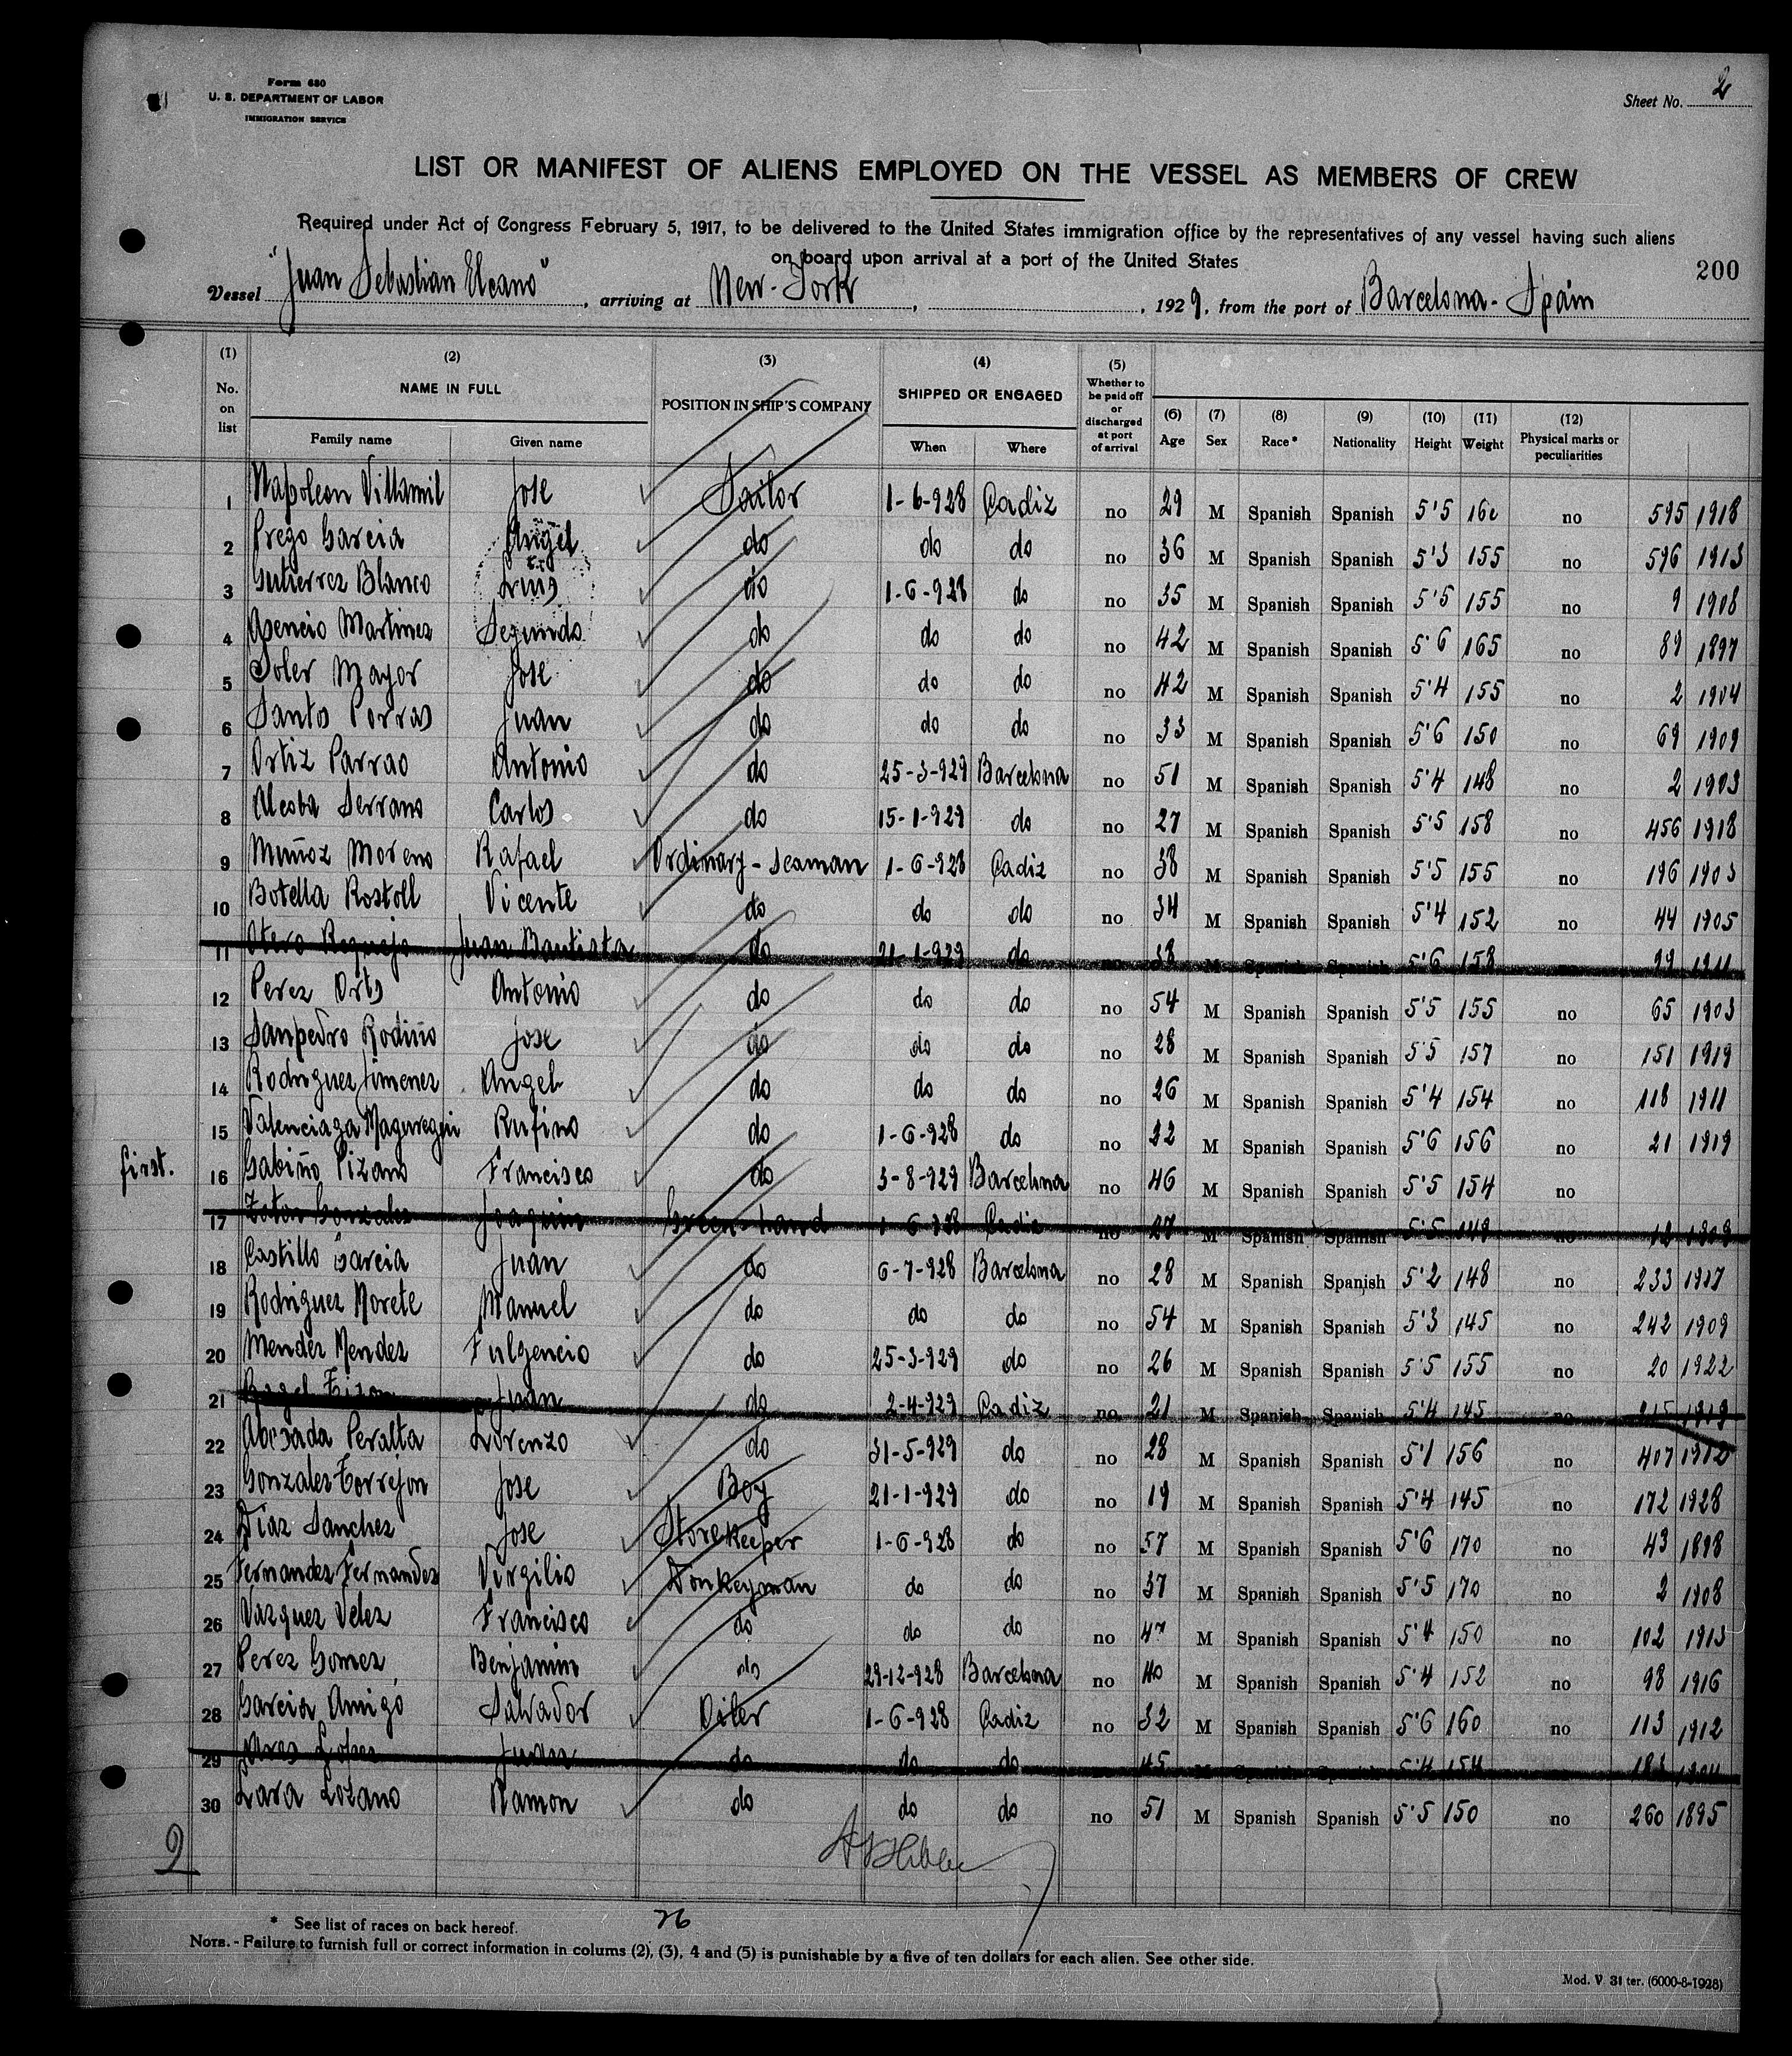 Form 680
U. S. DEPARTMENT OF LABOR
IMMIGRATION SERVICE
Sheet No. 2
LIST OR MANIFEST OF ALIENS EMPLOYED ON THE VESSEL AS MEMBERS OF CREW
Required under Act of Congress February 5, 1917, to be delivered to the United States immigration office by the representatives of any vessel having such aliens
on board upon arrival at a port of the United States
200
Vessel "Juan Sebastian Elcano", arriving at New-York, , 1929, from the port of Barcelona - Spain
(1) (2) (3) (4) (5)
No. on list NAME IN FULL POSITION IN SHIP'S COMPANY SHIPPED OR ENGAGED Whether to be paid off or discharged at port of arrival (6) Age (7) Sex (8) Race* (9) Nationality (10) Height (11) Weight (12) Physical marks or peculiarities
Family name Given name When Where
1 Napoleon Villamil Jose Sailor 1-6-928 Cadiz no 29 M Spanish Spanish 5'5 160 no 595 1918
2 Prego Garcia Angel do do do no 36 M Spanish Spanish 5'3 155 no 596 1913
3 Gutierrez Blanco Luis do 1-6-928 do no 35 M Spanish Spanish 5'5 155 no 9 1908
4 Asencio Martinez Segundo do do do no 42 M Spanish Spanish 5'6 165 no 89 1897
5 Soler Mayor Jose do do do no 42 M Spanish Spanish 5'4 155 no 2 1904
6 Santos Porras Juan do do do no 33 M Spanish Spanish 5'6 150 no 69 1909
7 Ortiz Parrao Antonio do 25-3-929 Barcelona no 51 M Spanish Spanish 5'4 148 no 2 1903
8 Alcoba Serrano Carlos do 15-1-929 do no 27 M Spanish Spanish 5'5 158 no 456 1918
9 Muñoz Moreno Rafael Ordinary-Seaman 1-6-928 Cadiz no 38 M Spanish Spanish 5'5 155 no 196 1903
10 Botella Rostoll Vicente do do do no 34 M Spanish Spanish 5'4 152 no 44 1905
11 Otero Requejo Juan Bautista do 21-1-929 do no 38 M Spanish Spanish 5'6 158 no 99 1911
12 Perez Orts Antonio do do do no 54 M Spanish Spanish 5'5 155 no 65 1903
13 Sanpedro Rodiño Jose do do do no 28 M Spanish Spanish 5'5 157 no 151 1919
14 Rodriguez Jimenez Angel do do do no 26 M Spanish Spanish 5'4 154 no 118 1911
15 Valenciaga Rufino do 1-6-928 do no 32 M Spanish Spanish 5'6 156 no 21 1919
first. 16 Gabiño Pizano Francisco do 3-8-929 Barcelona no 46 M Spanish Spanish 5'5 154 no
17 Gonzalez Joaquin 1-6-928 Cadiz no 27 M Spanish Spanish 5'5 149 no 1909
18 Castillo Garcia Juan do 6-7-928 Barcelona no 28 M Spanish Spanish 5'2 148 no 233 1917
19 Rodriguez Morete Manuel do do do no 54 M Spanish Spanish 5'3 145 no 242 1909
20 Mendez Mendez Fulgencio do 25-3-929 do no 26 M Spanish Spanish 5'5 155 no 20 1922
21 Juan do 2-4-929 Cadiz no 21 M Spanish Spanish 5'4 145 no 1919
22 Abesada Peralta Lorenzo do 31-5-929 do no 28 M Spanish Spanish 5'1 156 no 407
23 Gonzalez Torrejon Jose Boy 21-1-929 do no 19 M Spanish Spanish 5'4 145 no 172 1928
24 Diaz Sanchez Jose Storekeeper 1-6-928 do no 57 M Spanish Spanish 5'6 170 no 43 1898
25 Fernandez Fernandez Virgilio Donkeyman do do no 37 M Spanish Spanish 5'5 170 no 2 1908
26 Vazquez Velez Francisco do do do no 47 M Spanish Spanish 5'4 150 no 102 1913
27 Perez Gomez Benjamin do 29-12-928 Barcelona no 40 M Spanish Spanish 5'4 152 no 98 1916
28 Garcia Amigo Salvador Oiler 1-6-928 Cadiz no 32 M Spanish Spanish 5'6 160 no 113 1912
29 Juan do do do 45 M Spanish Spanish 5'4 154
30 Lara Lozano Ramon do do do no 51 M Spanish Spanish 5'5 150 no 260 1895
2
* See list of races on back hereof. 26
NOTE. - Failure to furnish full or correct information in colums (2), (3), 4 and (5) is punishable by a five of ten dollars for each alien. See other side.
Mod. V. 31 ter. (6000-8-1928)